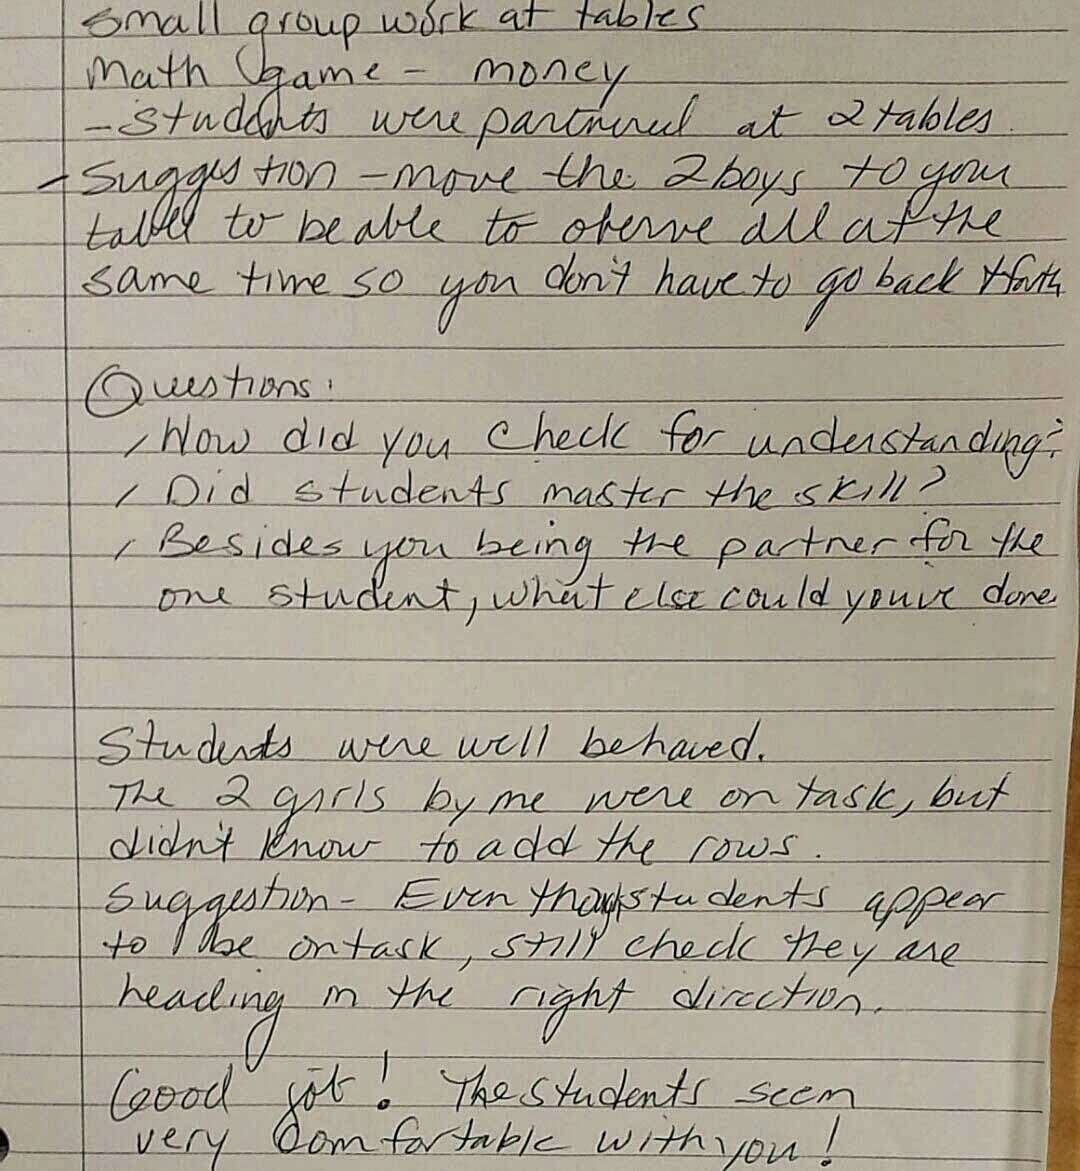 small group work at tables
Math game - money
- Students were partnered at 2 tables.
- Suggestion - move the 2 boys to your
table to be able to oberve all at the
same time so you don't have to go back + forth
Questions:
, How did you check for understanding?
, Did students master the skill?
, Besides you being the partner for the
one student, what else could youve done
Students were well behaved.
The 2 girls by me were on task, but
didn't know to add the rows.
Suggestion - Even though students appear
to be on task, still check they are
heading in the right direction.
Good job! The students seem
very comfortable with you!